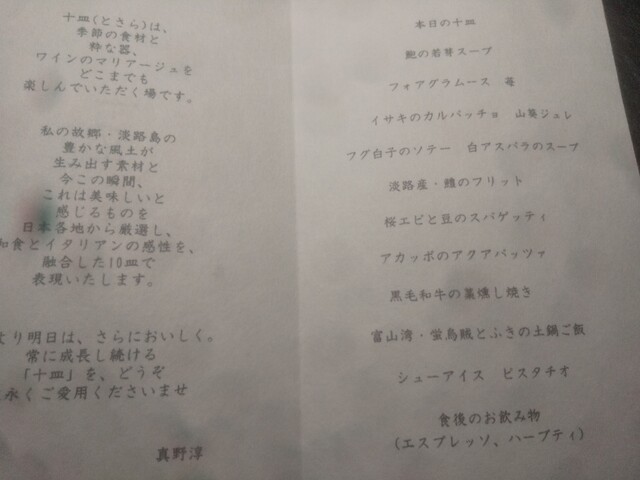 十皿(とさら)は、
季節の食材と
粋な器、
ワインのマリアージュを
どこまでも
楽しんでいただく場です。
私の故郷・淡路島の
豊かな風土が
生み出す素材と
今この瞬間、
これは美味しいと
感じるものを
日本各地から厳選し、
和食とイタリアンの感性を、
融合した10皿で
表現いたします。
より明日は、さらにおいしく。
常に成長し続ける
「十皿」を、どうぞ
永くご愛用くださいませ
真野淳
本日の十皿
鮑の若芽スープ
フォアグラムース 苺
イサキのカルパッチョ 山葵ジュレ
フグ白子のソテー 白アスパラのスープ
淡路産・鱧のフリット
桜エビと豆のスパゲッティ
アカッポのアクアパッツァ
黒毛和牛の藁燻し焼き
富山湾・蛍烏賊とふきの土鍋ご飯
シューアイス ピスタチオ
食後のお飲み物
(エスプレッソ、ハーブティ)